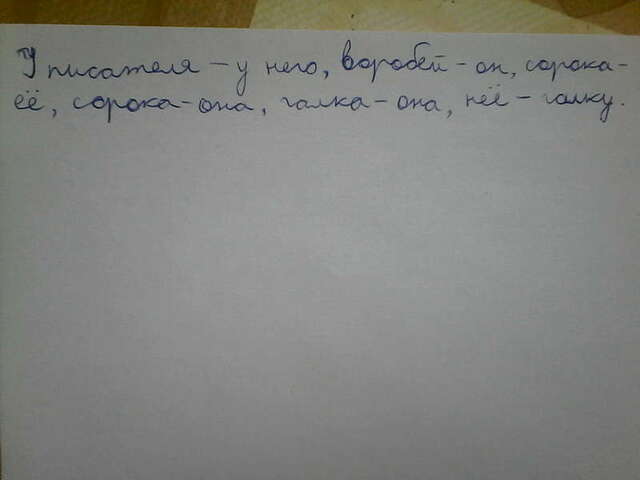 У писателя - у него, воробей - он, сорока -
её, сорока - она, галка - она, неё - галку.